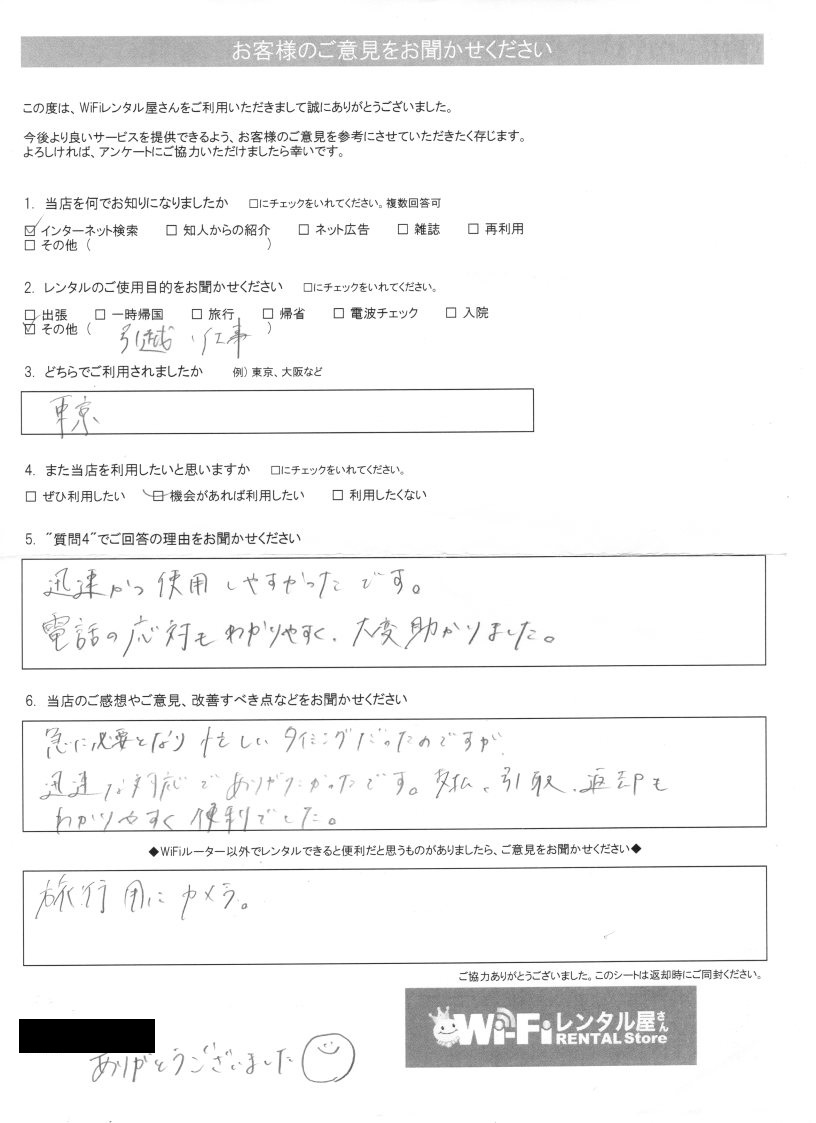 お客様のご意見をお聞かせください
この度は、WiFiレンタル屋さんをご利用いただきまして誠にありがとうございました。
今後より良いサービスを提供できるよう、お客様のご意見を参考にさせていただきたく存じます。
よろしければ、アンケートにご協力いただけましたら幸いです。
1. 当店を何でお知りになりましたか □にチェックをいれてください。複数回答可
☑ インターネット検索 □ 知人からの紹介 □ ネット広告 □ 雑誌 □ 再利用
□ その他 ( )
2. レンタルのご使用目的をお聞かせください □にチェックをいれてください。
□ 出張 □ 一時帰国 □ 旅行 □ 帰省 □ 電波チェック □ 入院
☑ その他 ( 引越、仕事 )
3. どちらでご利用されましたか 例) 東京、大阪など
東京
4. また当店を利用したいと思いますか □にチェックをいれてください。
□ ぜひ利用したい ☑ 機会があれば利用したい □ 利用したくない
5. "質問4"でご回答の理由をお聞かせください
迅速かつ使用しやすかったです。
電話の応対もわかりやすく、大変助かりました。
6. 当店のご感想やご意見、改善すべき点などをお聞かせください
急に必要となり忙しいタイミングだったのですが
迅速な対応でありがたかったです。支払、引取、返却も
わかりやすく便利でした。
◆WiFiルーター以外でレンタルできると便利だと思うものがありましたら、ご意見をお聞かせください◆
旅行用にカメラ。
ご協力ありがとうございました。このシートは返却時にご同封ください。
Wi-Fiレンタル屋さん
RENTAL Store
ありがとうございました